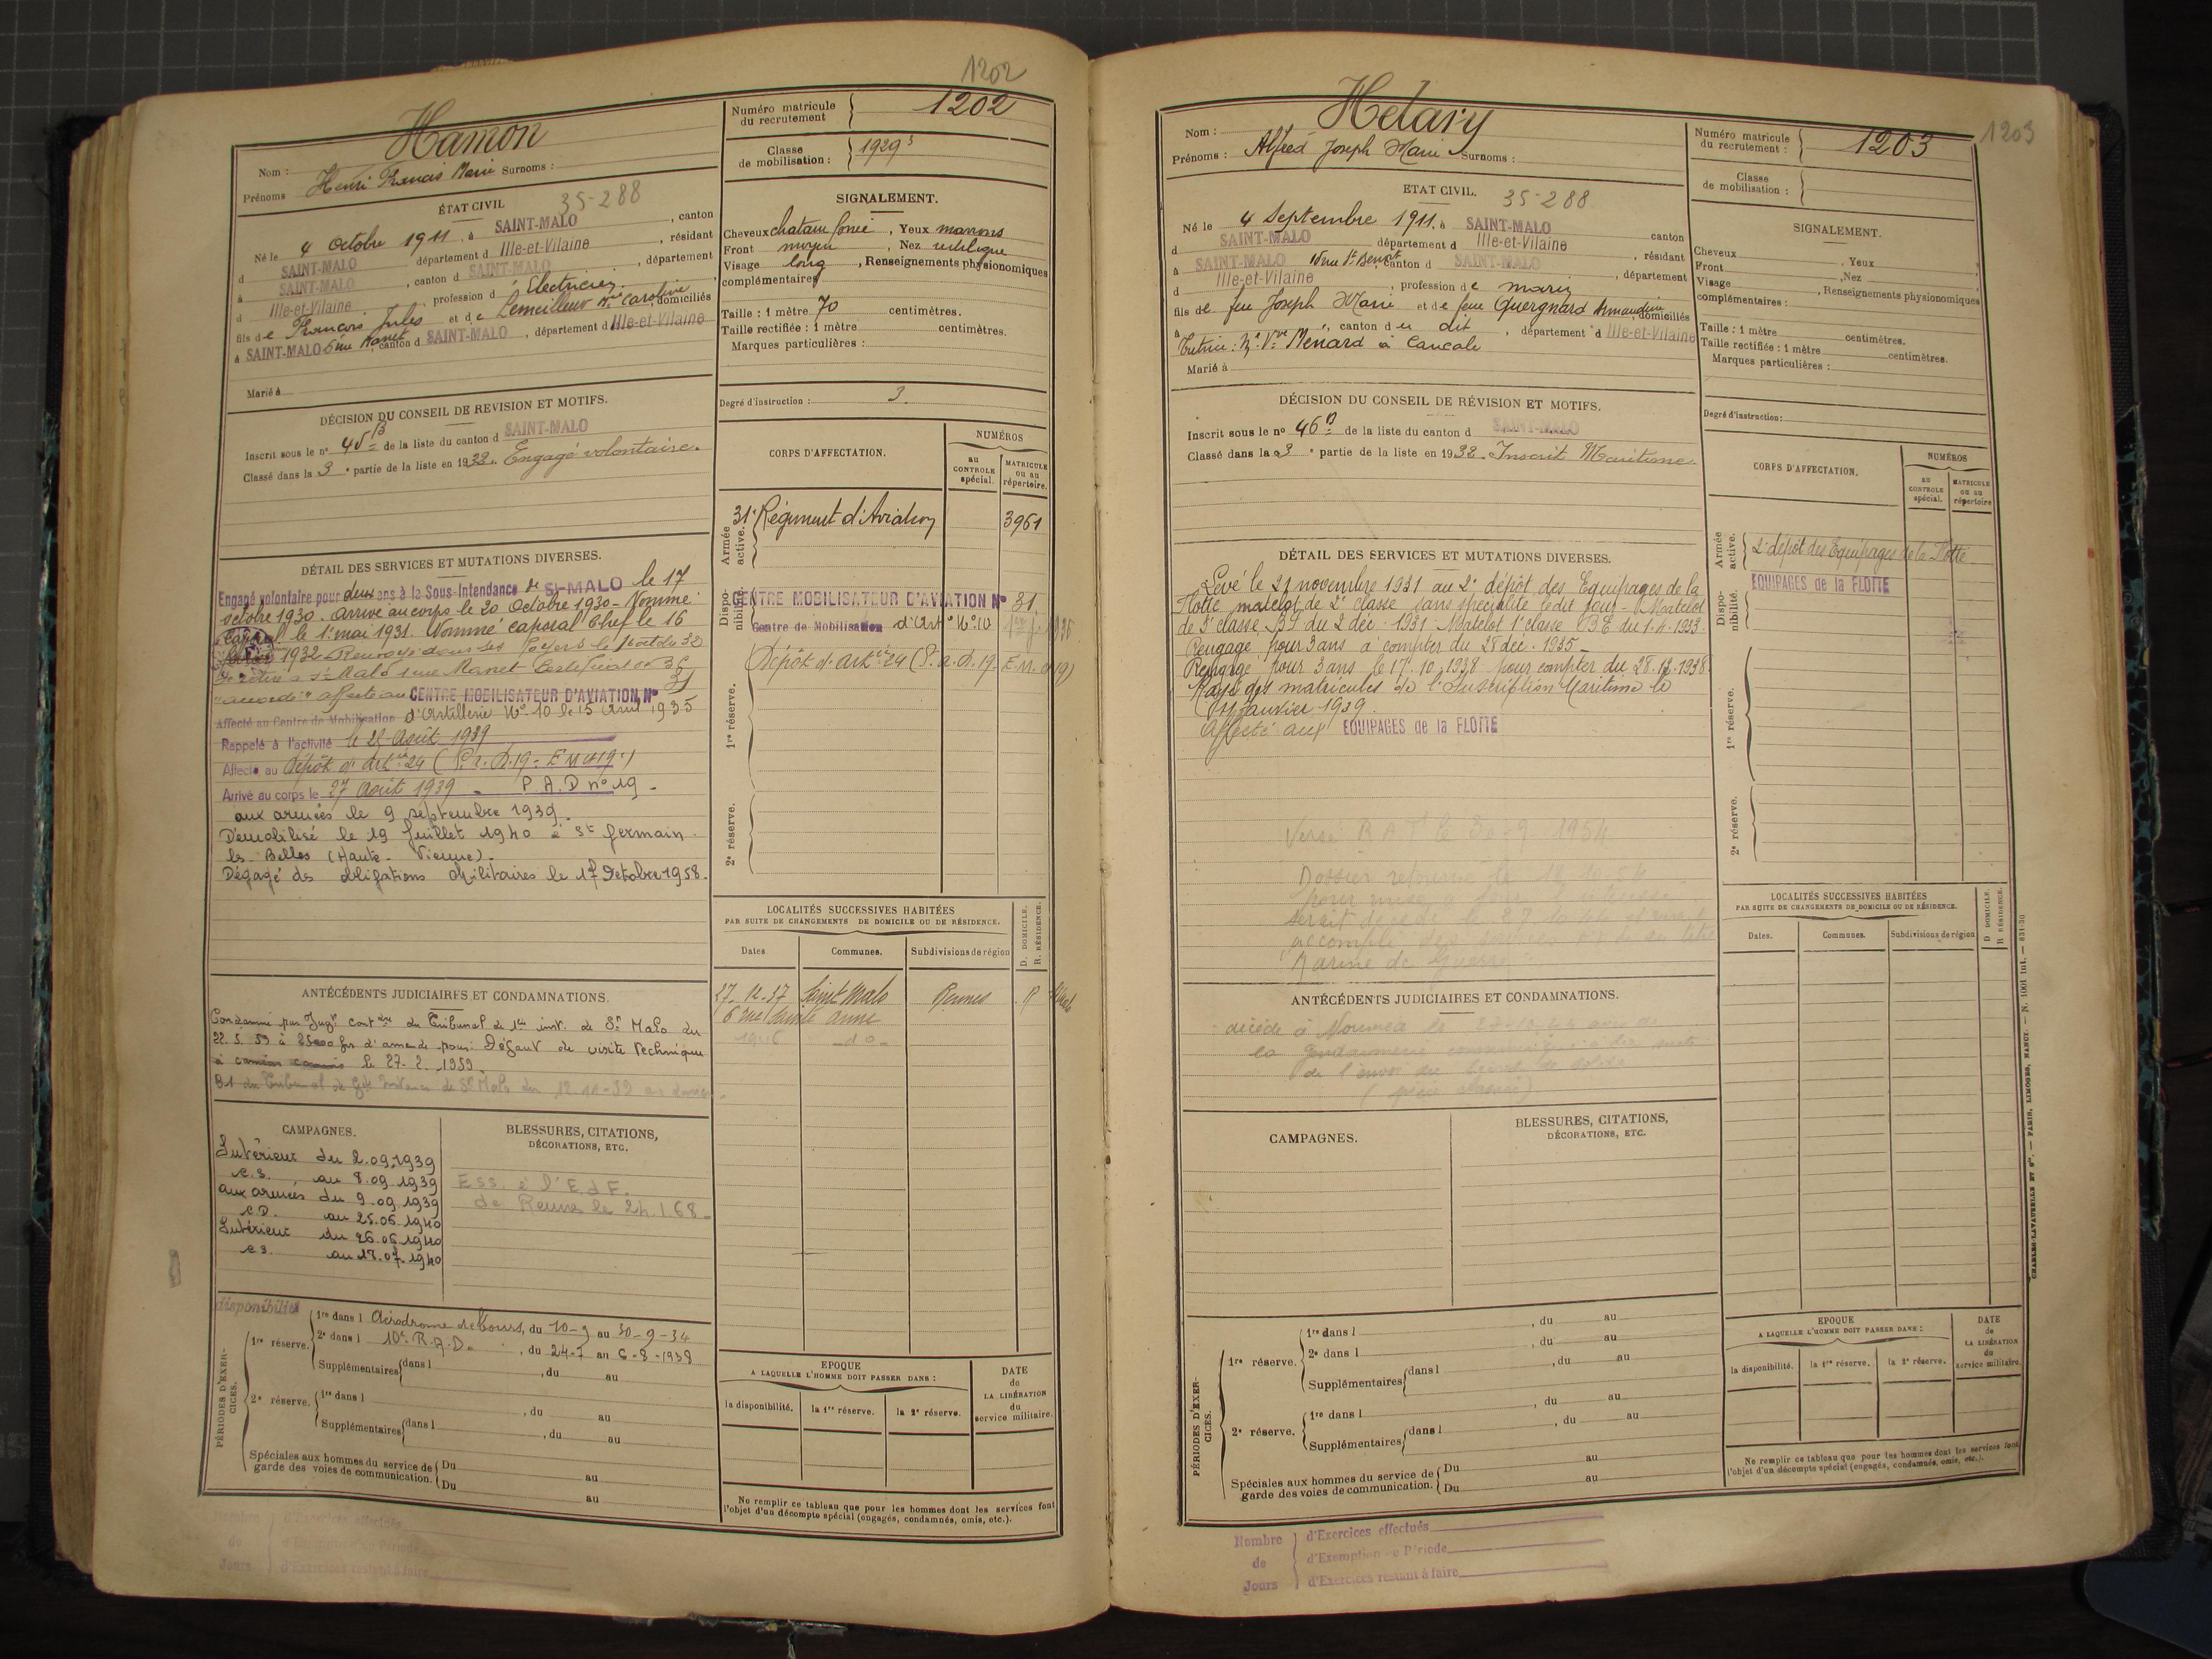 1202
Nom : Hamon
Prénoms Henri Francis Marie Surnoms :
Numéro matricule du recrutement 1202
Classe de mobilisation : 1929
ÉTAT CIVIL 35-288
Né le 4 Octobre 1911, à SAINT-MALO, canton
d SAINT-MALO département d Ille-et-Vilaine, résidant
à SAINT-MALO, canton d SAINT-MALO, département
d Ille-et-Vilaine, profession d Electricien
fils de François Jules et de Lemeilleur Caroline, domiciliés
à SAINT-MALO 5 rue Manet, canton d SAINT-MALO, département d Ille-et-Vilaine
Marié à
SIGNALEMENT.
Cheveux chatain foncé, Yeux marrons
Front moyen, Nez rectiligne
Visage long, Renseignements physionomiques
complémentaires
Taille : 1 mètre 70 centimètres.
Taille rectifiée : 1 mètre centimètres.
Marques particulières :
Degré d'instruction : 3.
DÉCISION DU CONSEIL DE REVISION ET MOTIFS.
Inscrit sous le n° 45 B de la liste du canton d SAINT-MALO
Classé dans la 3e partie de la liste en 1932. Engagé volontaire.
CORPS D'AFFECTATION.
NUMÉROS
AU CONTROLE spécial.
MATRICULE ou au répertoire.
Armée active.
31e Régiment d'Aviation 3961
Disponibilité.
CENTRE MOBILISATEUR D'AVIATION N° 31
Centre de Mobilisation d'Art ie N° 10
Dépôt d'art ie 24 (P.a.D.19 E.M. 19)
1re réserve.
2e réserve.
DÉTAIL DES SERVICES ET MUTATIONS DIVERSES.
Engagé volontaire pour deux ans à la Sous-Intendance de St-MALO le 17
octobre 1930. Arrivé au corps le 20 Octobre 1930 - Nommé
Caporal le 1er mai 1931. Nommé caporal Chef le 16
1932 Renvoyé dans ses foyers le
Se retire à St Malo rue Manet Certificat
"accordé" affecté au CENTRE MOBILISATEUR D'AVIATION N° 31
Affecté au Centre de Mobilisation d'Artillerie N° 10 le 15 Avril 1935
Rappelé à l'activité le 25 Août 1939
Affecté au Dépôt d'Art ie 24 (P.a.D.19 - E M 19)
Arrivé au corps le 27 Août 1939 - P.A.D n° 19 -
aux armées le 9 septembre 1939.
Démobilisé le 19 Juillet 1940 à St Germain
les Belles (Haute - Vienne).
Dégagé des obligations Militaires le 17 Octobre 1958.
LOCALITÉS SUCCESSIVES HABITÉES
PAR SUITE DE CHANGEMENTS DE DOMICILE OU DE RÉSIDENCE.
D. DOMICILE. R. RÉSIDENCE.
Dates Communes. Subdivisions de région
27-12-37 Saint Malo Rennes R
6 rue Sainte Anne
-do-
ANTÉCÉDENTS JUDICIAIRES ET CONDAMNATIONS.
Condamné par Jugt cont du Tribunal de 1ère inst. de St Malo du
22.5.59 à 25000 frs d'amende pour : Défaut de visite technique
à camion le 27.2.1959
B1 du Tribunal de Gde Instance de St Malo du 12
CAMPAGNES.
Intérieur du 2.09.1939
C.S. au 8.09.1939
aux armées du 9.09.1939
C.D. au 25.06.1940
Intérieur du 26.06.1940
C.S. au 17.07.1940
BLESSURES, CITATIONS,
DÉCORATIONS, ETC.
Ess. à l'E.d.F.
de Rennes le 24.1.68 -
disponibilité
PÉRIODES D'EXERCICES.
1re réserve.
1re dans l Aérodrome de Tours, du 10-9 au 30-9-34
2e dans l 10e R.A.D., du 24-7 au 6-8-1938
Supplémentaires dans l , du au
2e réserve.
1re dans l , du au
Supplémentaires dans l , du au
Spéciales aux hommes du service de garde des voies de communication.
Du au
Du au
EPOQUE
A LAQUELLE L'HOMME DOIT PASSER DANS :
la disponibilité. la 1re réserve. la 2e réserve.
DATE de LA LIBÉRATION du service militaire.
Ne remplir ce tableau que pour les hommes dont les services font
l'objet d'un décompte spécial (engagés, condamnés, omis, etc.).
Nombre de Jours
d'Exercices effectués
d'Exemption de Période
d'Exercices restant à faire
1203
Nom : Helary
Prénoms : Alfred Joseph Marie Surnoms :
Numéro matricule du recrutement : 1203
Classe de mobilisation :
ETAT CIVIL. 35-288
Né le 4 Septembre 1911, à SAINT-MALO canton
d SAINT-MALO département d Ille-et-Vilaine
à SAINT-MALO rue St Benoit, canton d SAINT-MALO, résidant
d Ille-et-Vilaine, profession de marin, département
fils de feu Joseph Marie et de feue Quergnard Armandine, domiciliés
à ", canton d u dit, département d Ille-et-Vilaine
Tutrice : Mme Vve Menard à Cancale
Marié à
SIGNALEMENT.
Cheveux , Yeux
Front , Nez
Visage , Renseignements physionomiques
complémentaires :
Taille : 1 mètre centimètres.
Taille rectifiée : 1 mètre centimètres.
Marques particulières :
Degré d'instruction :
DÉCISION DU CONSEIL DE RÉVISION ET MOTIFS.
Inscrit sous le n° 46 B de la liste du canton d SAINT-MALO
Classé dans la 3e partie de la liste en 1932. Inscrit Maritime.
CORPS D'AFFECTATION.
NUMÉROS
AU CONTROLE spécial.
MATRICULE ou au répertoire
Armée active.
2e dépôt des Equipages de la Flotte
Disponibilité.
EQUIPAGES de la FLOTTE
1re réserve.
2e réserve.
DÉTAIL DES SERVICES ET MUTATIONS DIVERSES.
Levé le 21 novembre 1931 au 2e dépôt des Equipages de la
Flotte matelot de 2e classe sans spécialité ledit jour - Matelot
de 3e classe BE du 2 déc. 1931 - Matelot 1e classe BE du 1.4.1933.
Rengagé pour 3 ans à compter du 28 déc. 1935 -
Rengagé pour 3 ans le 17.10.1938 pour compter du 28.12.1938.
Rayé des matricules de l'Inscription Maritime le
Janvier 1939.
Affecté aux EQUIPAGES de la FLOTTE
Versé R A T le 30-9-1954
Dossier retourné le 18-10-54
pour mise à jour
serait décédé
accompli
Marine de Guerre
LOCALITÉS SUCCESSIVES HABITÉES
PAR SUITE DE CHANGEMENTS DE DOMICILE OU DE RÉSIDENCE.
D DOMICILE. R RÉSIDENCE.
Dates. Communes. Subdivisions de région
ANTÉCÉDENTS JUDICIAIRES ET CONDAMNATIONS.
décédé à Nouméa le
la gendarmerie
de l'envoi
CAMPAGNES.
BLESSURES, CITATIONS,
DÉCORATIONS, ETC.
PÉRIODES D'EXERCICES.
1re réserve.
1re dans l , du au
2e dans l , du au
Supplémentaires dans l , du au
2e réserve.
1re dans l , du au
Supplémentaires dans l , du au
Spéciales aux hommes du service de garde des voies de communication.
Du au
Du au
EPOQUE
A LAQUELLE L'HOMME DOIT PASSER DANS :
la disponibilité. la 1re réserve. la 2e réserve.
DATE de LA LIBÉRATION du service militaire.
Ne remplir ce tableau que pour les hommes dont les services font
l'objet d'un décompte spécial (engagés, condamnés, omis, etc.).
CHARLES-LAVAUZELLE ET Cie. — PARIS, LIMOGES, NANCY. — N. 1001 int. — 831-30
Nombre de Jours
d'Exercices effectués
d'Exemption de Période
d'Exercices restant à faire